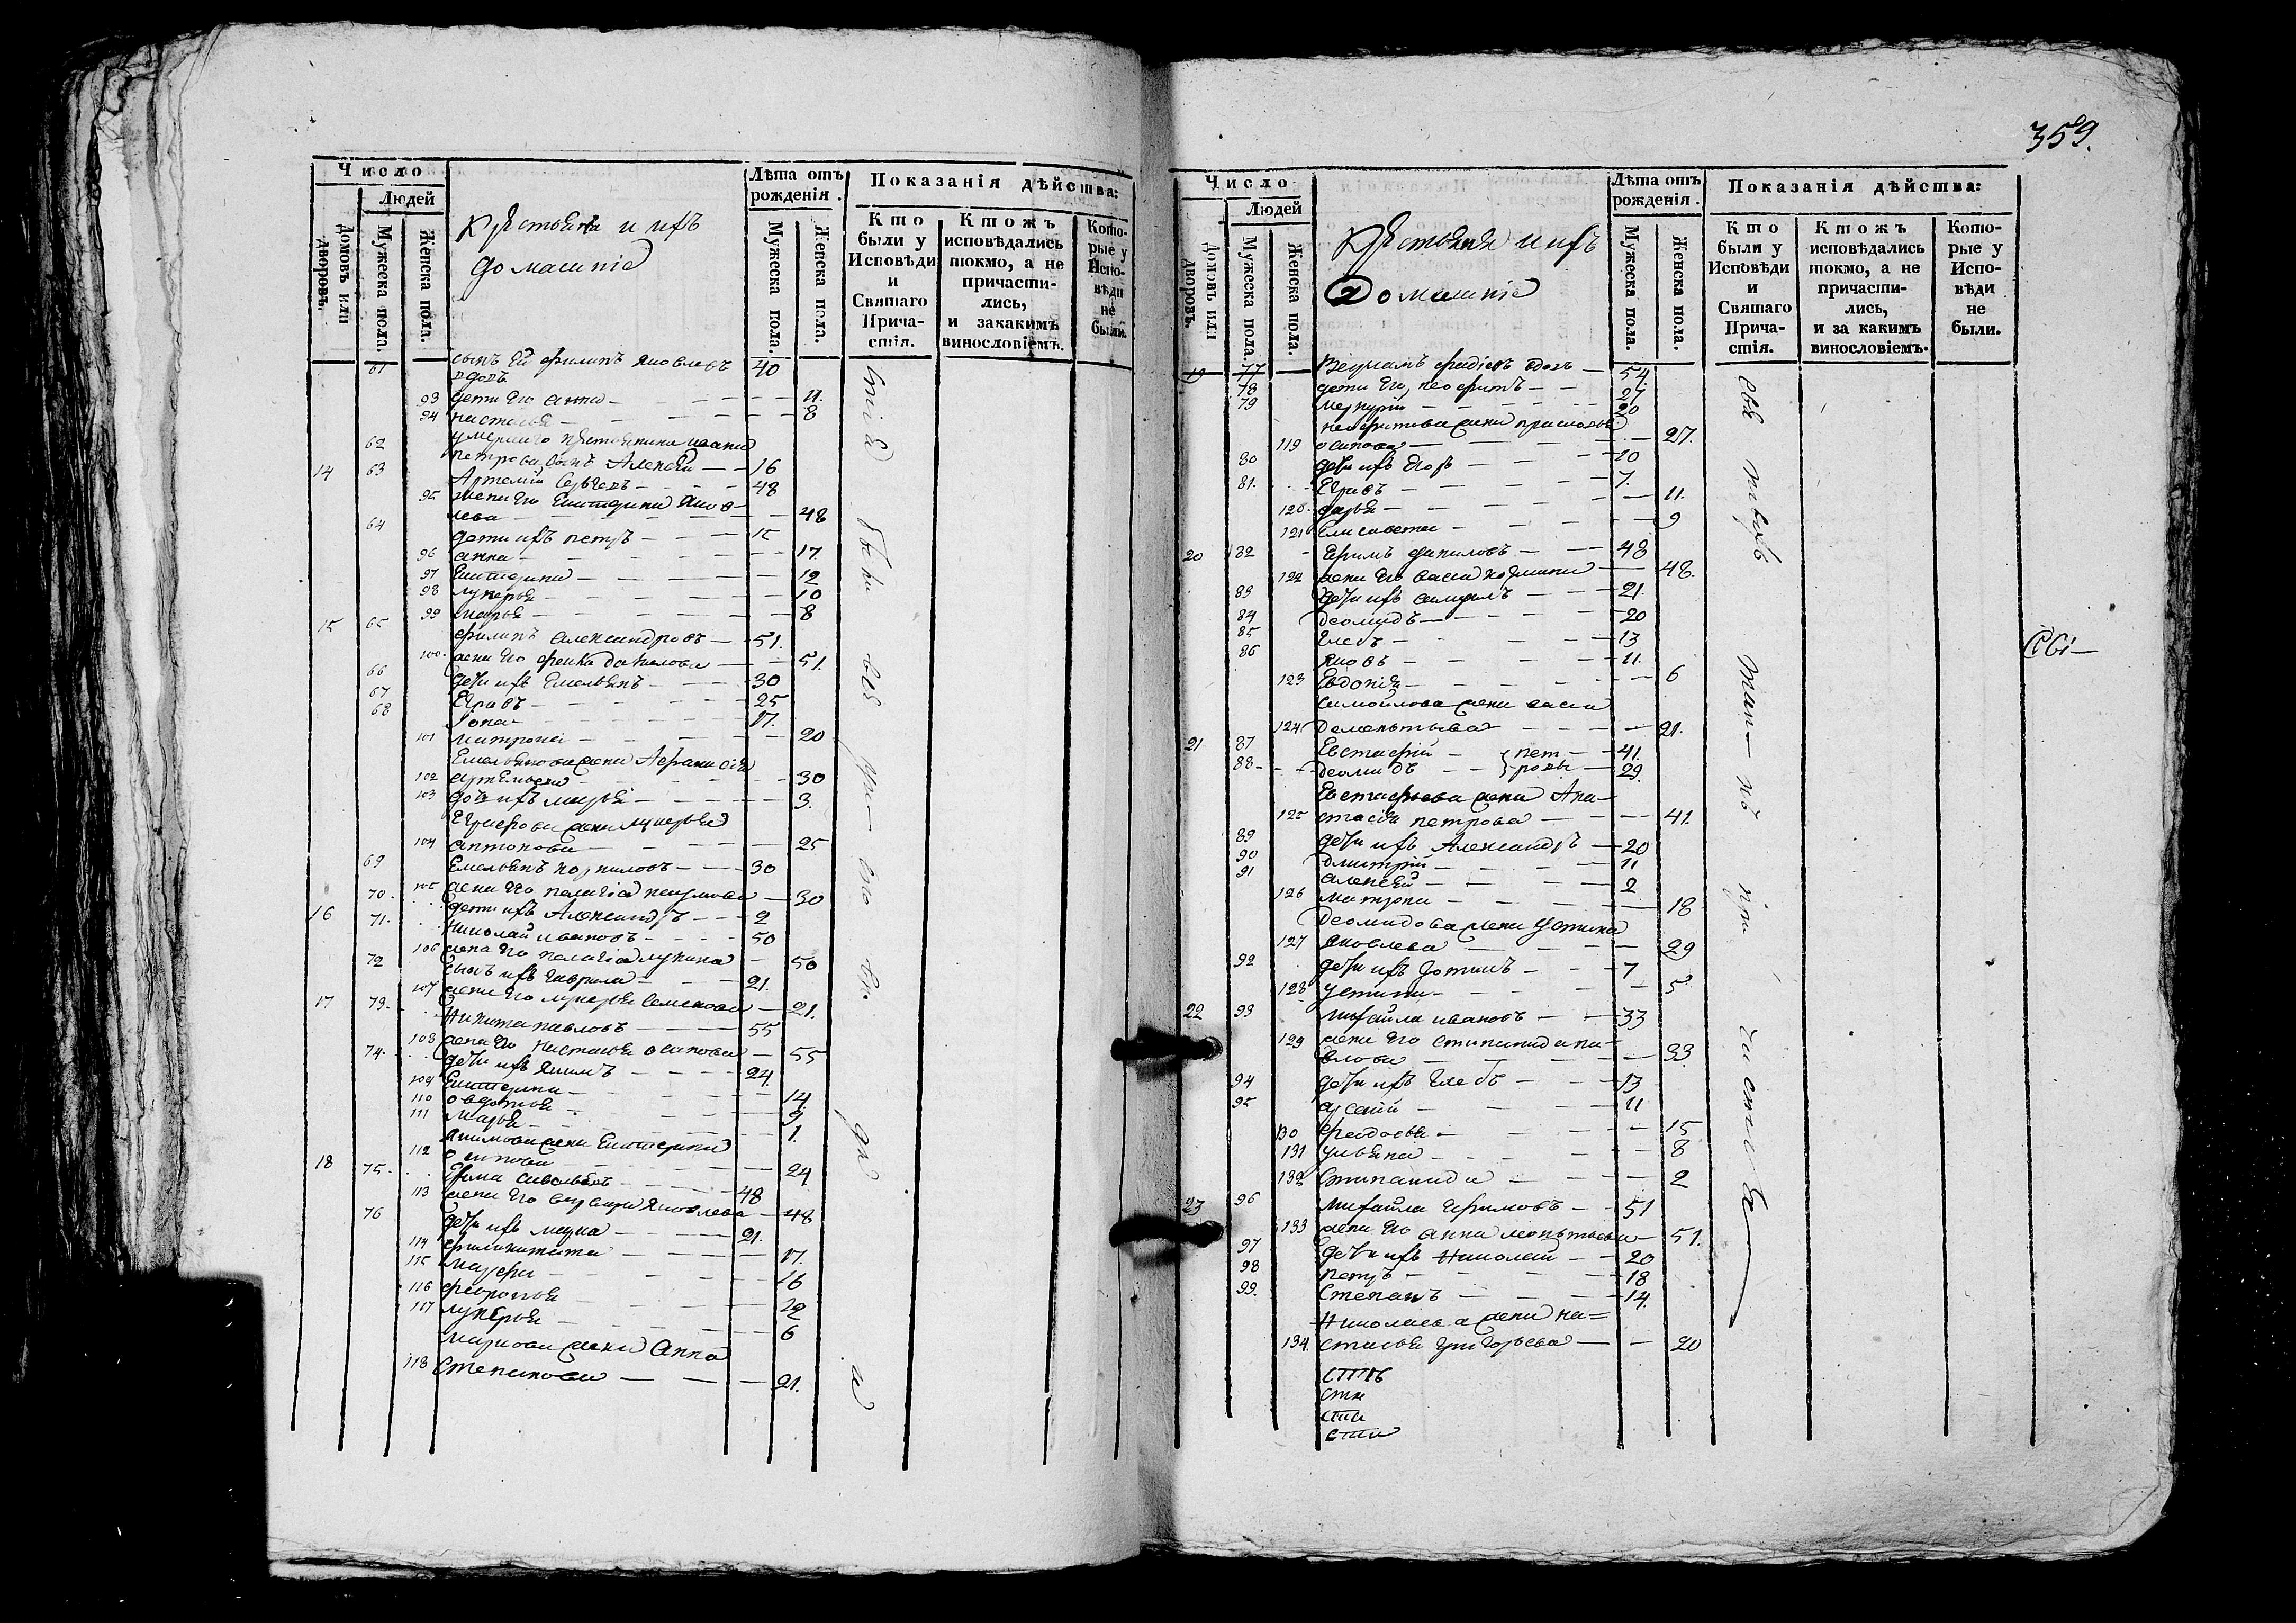 Число
Людей
Домовъ или дворовъ.
Мужеска пола.
Женска пола.
Крестьяне и ихъ
домашніе
Лѣта отъ рожденія.
Мужеска пола.
Женска пола.
Показанія дѣйства:
Кто были у Исповѣди и Святаго Причастія.
Ктожъ исповѣдались токмо, а не причастились, и закакимъ винословіемъ.
Которые у Исповѣди не были.
61 сынъ ей филипъ яковлевъ
вдовъ 40
93 дети его анна — 11.
94 настасья — 8
умершаго крестьянина ивана
62 петрова сынъ Алексѣй — 16
14 63 Артемій Сергеевъ — 48
95 жена его Екатерина яков-
лева — 48
64 дети ихъ петръ — 15
96 анна — 17.
97 Екатерина — 12
98 лукерья — 10
99 марья — 8
15 65 филипъ александровъ — 51.
100 жена его фекла данилова — 51.
66 дети ихъ Емельянъ — 30
67 Еграфъ — 25
68 Iона — 17.
101 матрона — 20
Емельянова жена Афанасія
102 артемьева — 30
103 дочь ихъ марья — 3.
Еграфова жена лукерья
104 антонова — 25
69 Емельянъ корниловъ — 30
105 жена его пелагія наумова — 30
70. дети ихъ Александръ — 2
16 71. Николай ивановъ — 50
106 жена его пелагія лукина — 50
72 сынъ ихъ гаврила — 21.
107 жена его лукерья семенова — 21.
17 73. Никита павловъ — 55
108 жена его настасья осипова — 55
74. дети ихъ якимъ — 24
109 Екатерина — 14.
110 овдотья — 9
111 марья — 1.
якимова жена Екатерина
112 осипова — 24
18 75. Ефимъ савельевъ — 48
113 жена его варвара яковлева — 48
76 дети ихъ марка — 21.
114 филикитата — 17.
115 марфа — 16
116 февронья — 12
117 лукерья — 6
маркова жена Анна
118 Степанова — 21.
359.
Число
Людей
Домовъ или дворовъ.
Мужеска пола.
Женска пола.
Крестьяне и ихъ
Домашніе
Лѣта отъ рожденія.
Мужеска пола.
Женска пола.
Показанія дѣйства:
Кто были у Исповѣди и Святаго Причастія.
Ктожъ исповѣдались токмо, а не причастились, и за какимъ винословіемъ.
Которые у Исповѣди не были.
19 77 вдовъ — 54.
78 дети его, неофитъ — 27
79 меркурій — 20
неофитова жена прасковья
119 осипова — 27.
80 дети ихъ Егоръ — 10
81. Еграфъ — 7.
120. дарья — 11.
121 Елисавета — 9
20 82 Ефимъ даниловъ — 48
122 жена его васса козмина — 48.
83 дети ихъ самуилъ — 21.
84 деомидъ — 20
85 глебъ — 13
86 яковъ — 11.
123 Евдокія — 6
самойлова жена васса
124 деменьтьева — 21.
21 87 Евстафій — } пет — 41.
88 деомидъ — } ровы — 29.
Евстафьева жена Ана-
125 стасія петрова — 41.
89 дети ихъ Александръ — 20
90 Дмитрій — 11
91 алексѣй — 2
126 матрона — 18
Деомидова жена устина
127 яковлева — 29
92 дети ихъ фотинъ — 7
128 устина — 5
22 93 михайла ивановъ — 33
129 жена его стипанида па-
влова — 33.
94 дети ихъ глебъ — 13
95 арсеній — 11
130 федосья — 15
131 ульяна — 8
132 Стипанида — 2
23 96 михайла Ефимовъ — 51
133 жена его анна леонтьева — 51.
97 дети ихъ Николай — 20
98 петръ — 18
99. Степанъ — 14.
Николаева жена на=
134. стасья григорьева — 20